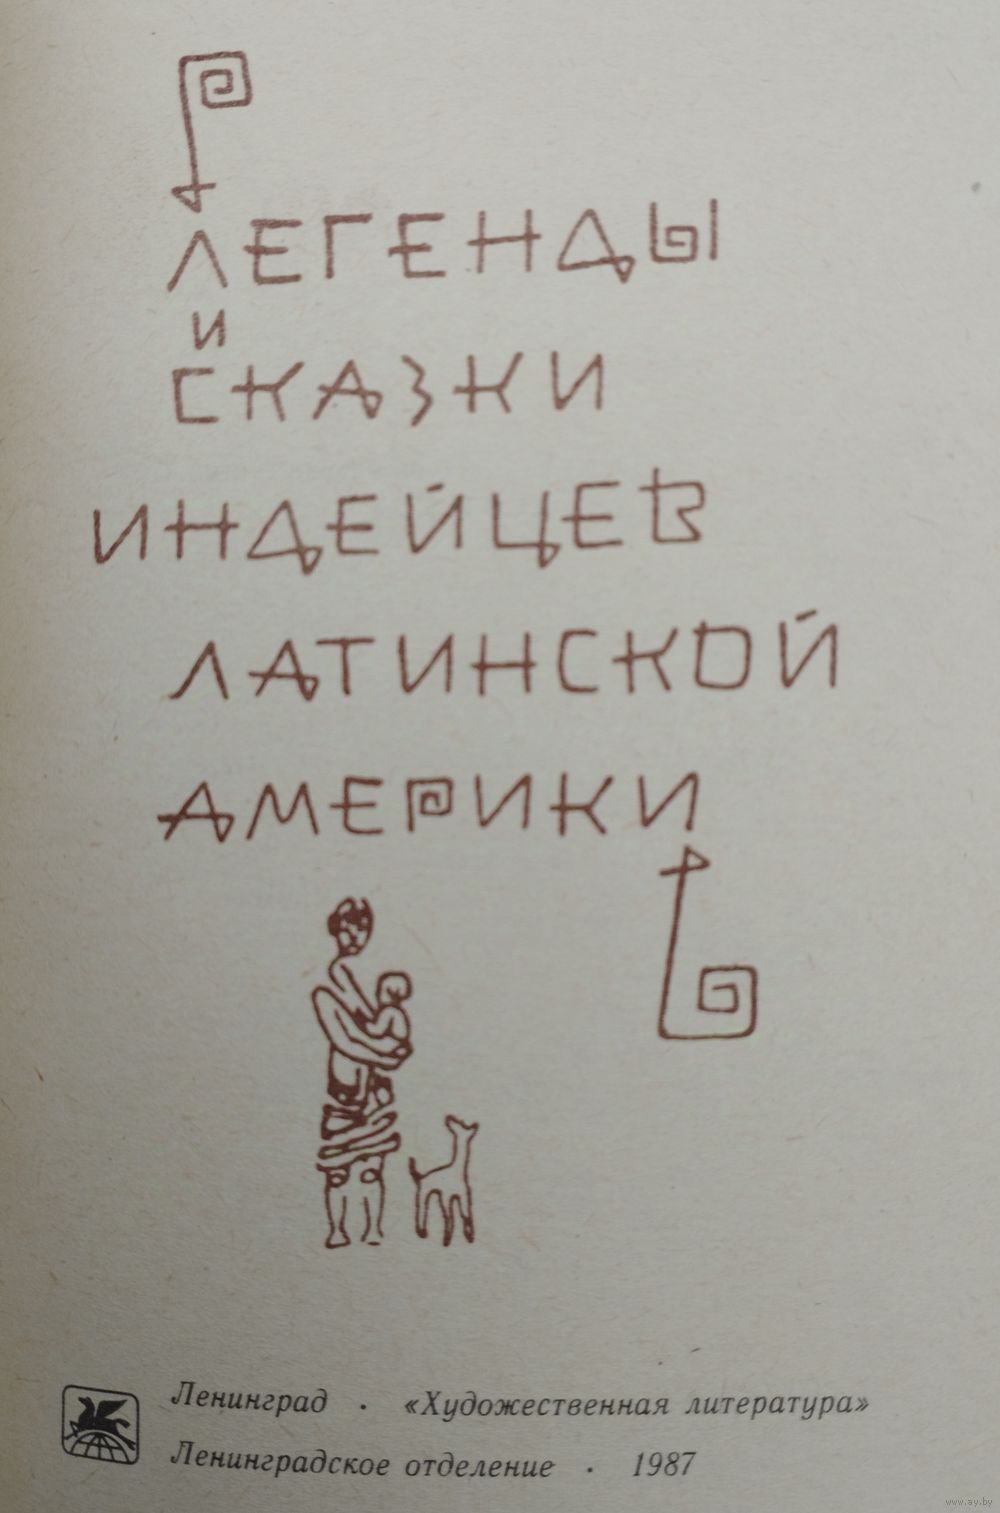 ЛЕГЕНДЫ
И
СКАЗКИ
ИНДЕЙЦЕВ
ЛАТИНСКОЙ
АМЕРИКИ
Ленинград · «Художественная литература»
Ленинградское отделение · 1987
www.ay.by